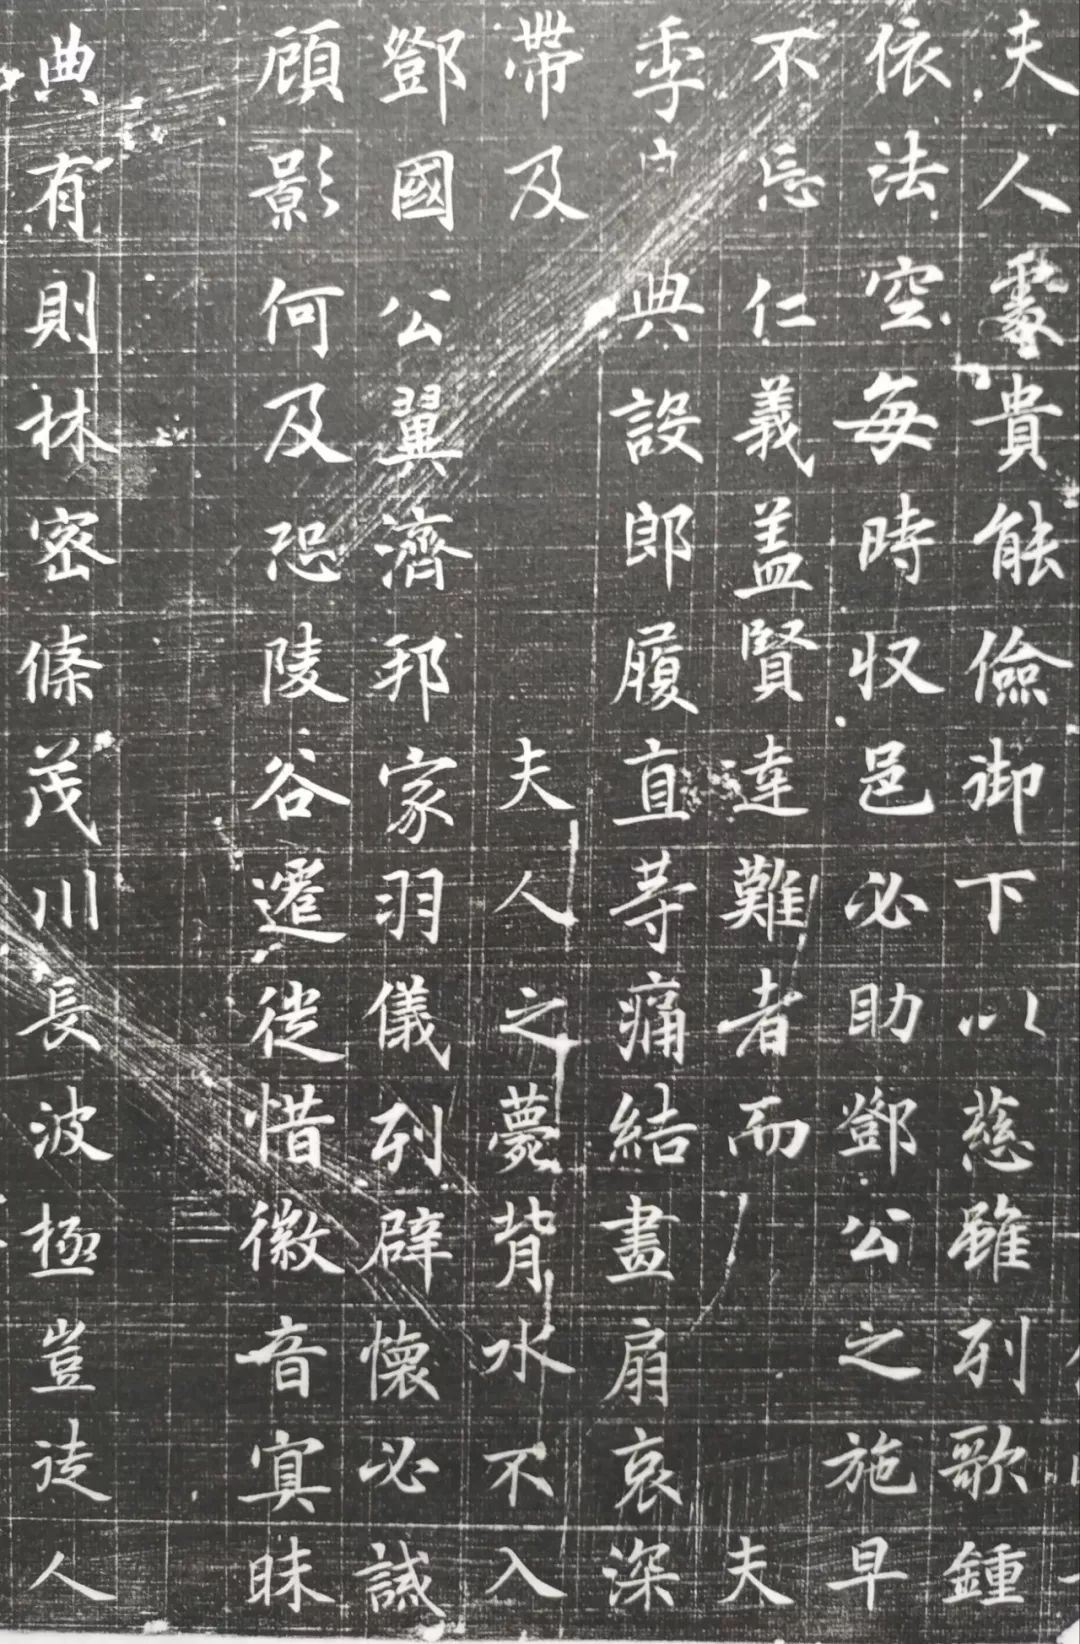 夫人處貴能儉御下以慈雖列歌鍾
依法空每時収邑必助鄧公之施早
不忘仁義盖賢達難者而夫
季典設郎履直等痛結畫扇哀深
帶及夫人之薨背水不入
鄧國公翼濟邦家羽儀列辟懷必誠
顧影何及恐陵谷遷徙惜徽音冥昧
典有則林密條茂川長波極豈徒人